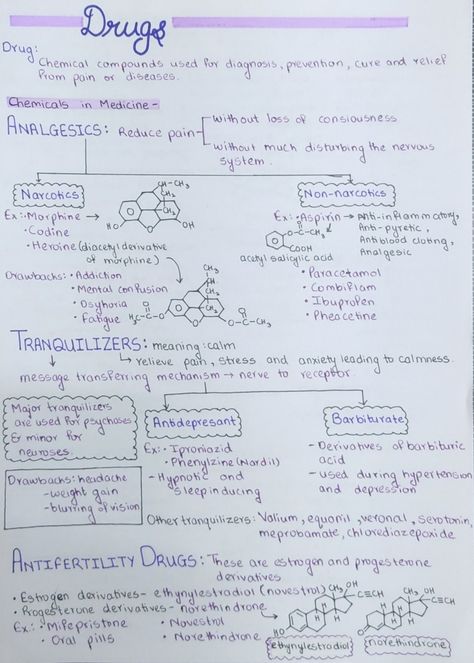 Drugs
Drug:
Chemical compounds used for diagnosis, prevention, cure and relief
from pain or diseases.
Chemicals in Medicine -
ANALGESICS: Reduce pain
without loss of consiousness
without much disturbing the nervous
system.
Narcotics
Ex:• Morphine →
• Codine
• Heroine (diacetyl derivative
of morphine)
Drawbacks: • Addiction
• Mental confusion
• Osyhoria
• Fatigue
CH-CH₃
CH₂
CH₂
HO
O
OH
CH₃
CH₂
CH₂
H₃C-C-O
O
O
O-C-CH₃
O
Non-narcotics
Ex:• Aspirin → Anti-inflammatory,
Anti-pyretic,
Antiblood cloting,
Analgesic
O
O-C-CH₃
COOH
acetyl salicylic acid
• Paracetamol
• Combiflam
• Ibuprofen
• Pheacetine
TRANQUILIZERS: meaning: calm
relieve pain, stress and anxiety leading to calmness.
message transferring mechanism → nerve to receptor.
Major tranquilizers
are used for psychoses
& minor for
neuroses.
Drawbacks: headache
- weight gain
- blurring of vision
Antidepresant
Ex: • Iproniazid
• Phenylzine (Nardil)
- Hypnotic and
sleep inducing
Barbiturate
- Derivatives of barbituric
acid
- used during hypertension
and depression
Other tranquilizers: Valium, equanil, veronal, serotonin,
meprobamate, chlorediazepoxide
ANTIFERTILITY DRUGS: These are estrogen and progesterone
derivatives
• Estrogen derivatives - ethynylestradiol (novestrol)
• Progesterone derivatives - norethindrone
Ex: • Mifepristone
• Oral pills
• Novestrol
• Norethindrone
CH₃ OH
C≡CH
H
H
H
HO
ethynylestradiol
CH₃ OH
C≡CH
H
H
H
H
O
norethindrone